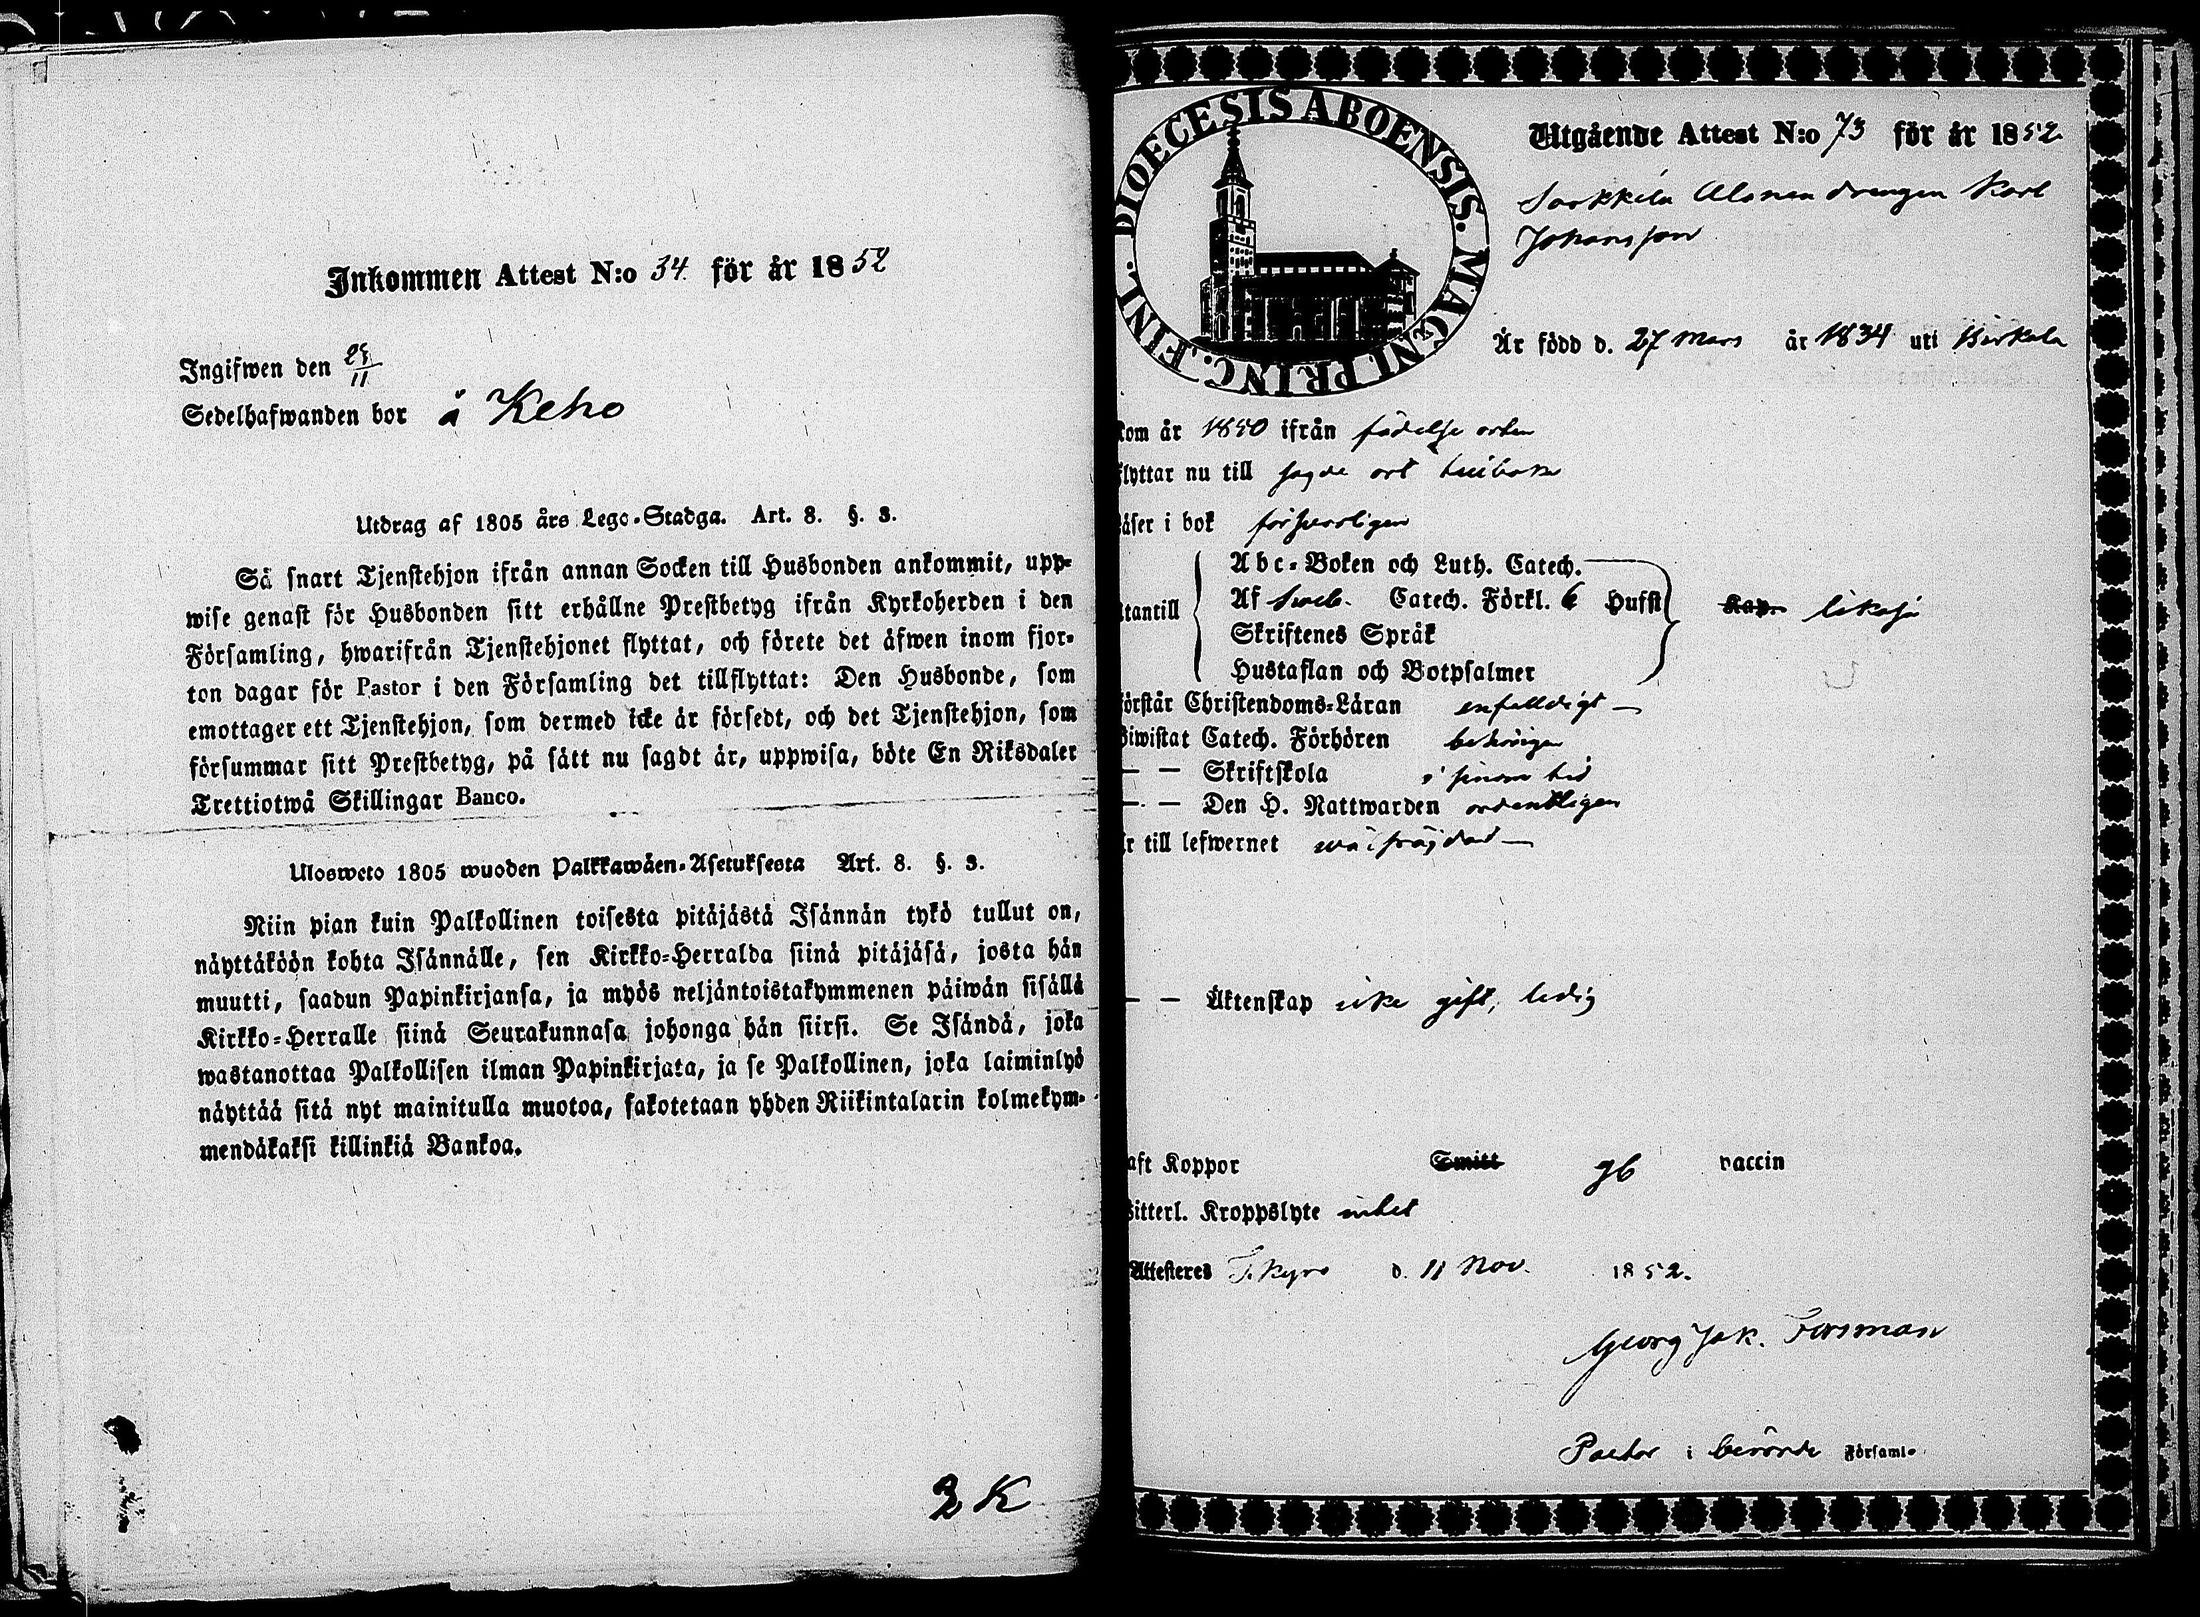 Inkommen Attest N:o 34 för år 1852
Ingifwen den 29/11
Sedelhafwanden bor å Keho
Utdrag af 1805 års Lego-Stadga. Art. 8. §. 3.
Så snart Tjenstehjon ifrån annan Socken till Husbonden ankommit, upp-
wise genast för Husbonden sitt erhållne Prestbetyg ifrån Kyrkoherden i den
Församling, hwarifrån Tjenstehjonet flyttat, och förete det äfwen inom fjor-
ton dagar för Pastor i den Församling det tillflyttat: Den Husbonde, som
emottager ett Tjenstehjon, som dermed icke är försedt, och det Tjenstehjon, som
försummar sitt Prestbetyg, på sätt nu sagdt är, uppwisa, böte En Riksdaler
Trettiotwå Skillingar Banco.
Ulosweto 1805 wuoden Palkkawäen-Asetuksesta Art. 8. §. 3.
Niin pian kuin Palkollinen toisesta pitäjästä Isännän tykö tullut on,
näyttäköön kohta Isännälle, sen Kirkko-Herralda siinä pitäjäsä, josta hän
muutti, saadun Papinkirjansa, ja myös neljäntoistakymmenen päiwän sisällä
Kirkko-Herralle siinä Seurakunnasa johonga hän siirsi. Se Isändä, joka
wastanottaa Palkollisen ilman Papinkirjata, ja se Palkollinen, joka laiminlyö
näyttää sitä nyt mainitulla muotoa, sakotetaan yhden Riikintalarin kolmekym-
mendäkaksi killinkiä Bankoa.
2 K
DIOECESIS ABOENSIS. MAGNI PRINC. FINL.
Utgående Attest N:o 73 för år 1852
Sarkkila Alanen drengen Karl
Johansson
Är född d. 27 Mars år 1834 uti Birkala
kom år 1850 ifrån födelse orten
flyttar nu till sagde ort tillbaka
läser i bok försvarligen
Abc-Boken och Luth. Catech.
utantill Af Sveb. Catech. Förkl. 6 Hufst Kap. likaså
Skriftenes Språk
Hustaflan och Botpsalmer
förstår Christendoms-Läran enfalldigt
Biwistat Catech. Förhören behörigen
— — Skriftskola i sinom tid
— — Den H. Nattwarden ordentligen
är till lefwernet wälfräjdad
— — Äktenskap icke gift, ledig
haft Koppor Smitt gb vaccin
Witterl. Kroppslyte intet
Attesteres T. Kyro d. 11 Nov. 1852.
Georg Jak. Forsman
Pastor i berörde Församl.